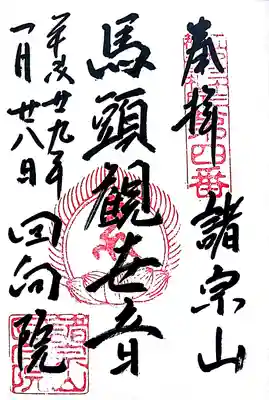 奉拝
諸宗山
馬頭観世音
平成廿九年
一月廿八日
回向院